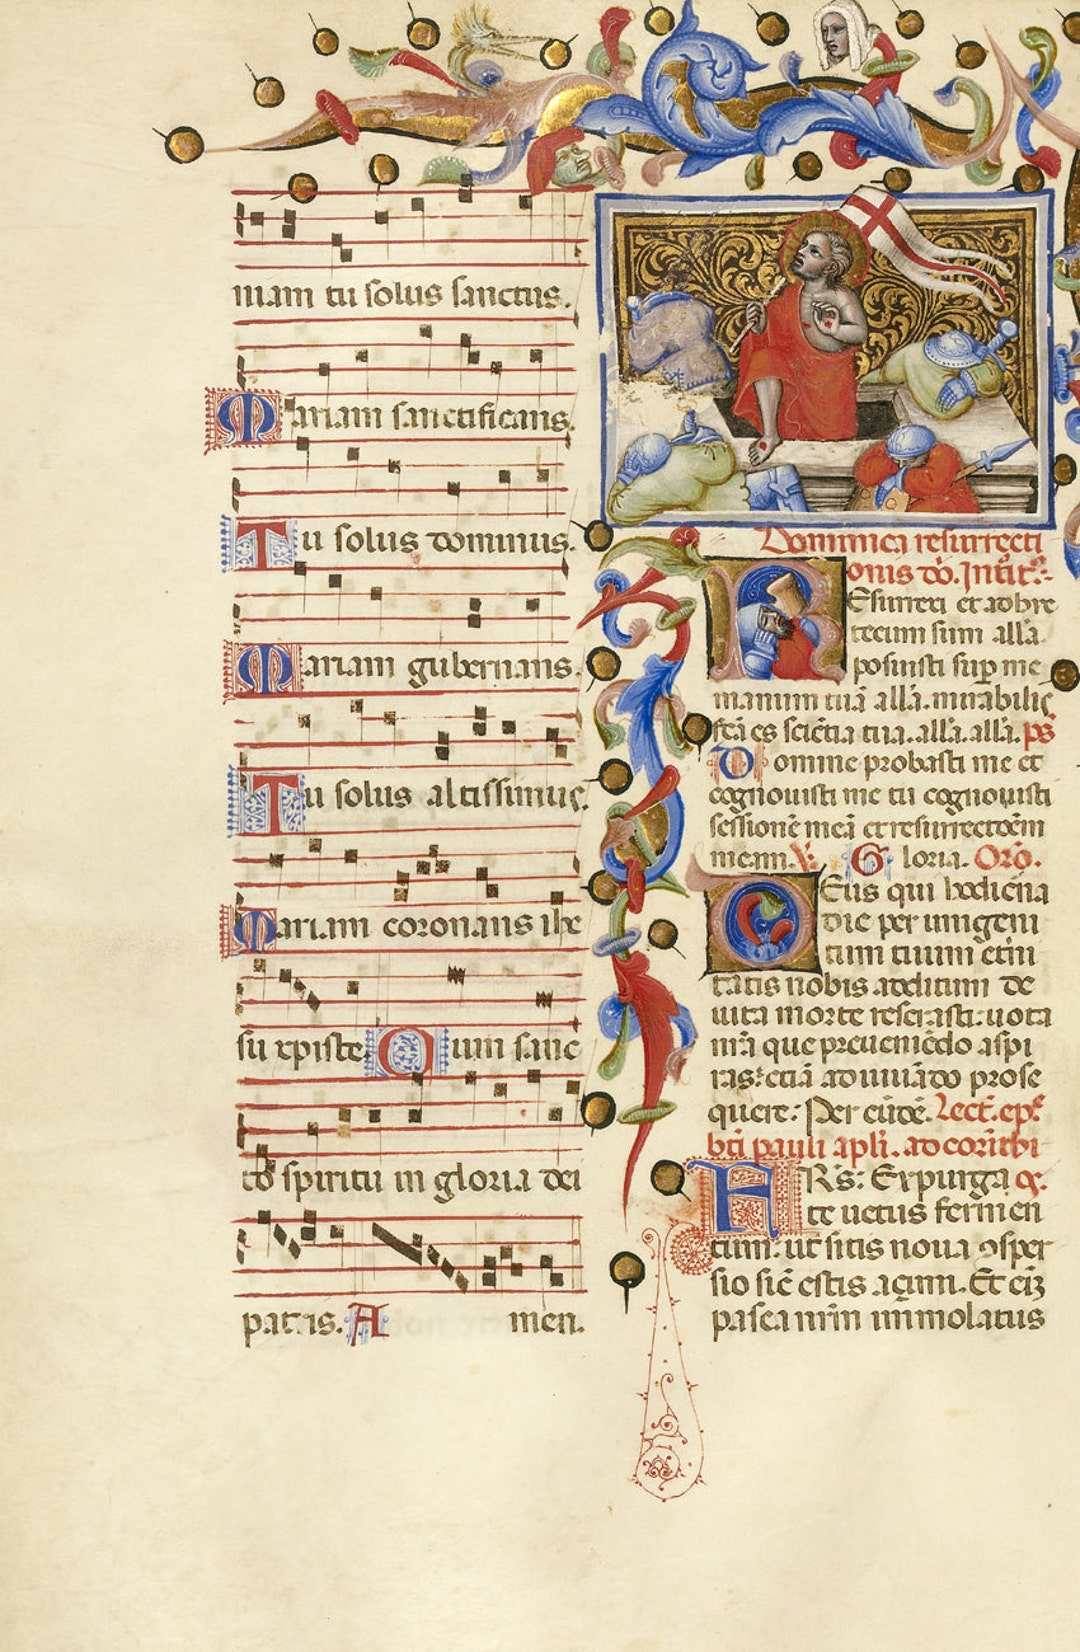 niam tu solus sanctus.
Mariam sanctificans.
Tu solus dominus.
Mariam gubernans.
Tu solus altissimus.
Mariam coronans ihe
su xpiste. Cum sanc
to spiritu in gloria dei
patris. Amen.
Dominica resurrecti
onis dn̄i. Introit̄.
Resurrexi et adhuc
tecum sum all'a
posuisti sup me
manum tuā all'a. mirabilis
fcā es sciētia tua. all'a. all'a. ps
Domine probasti me et
cognouisti me tu cognouisti
sessionē meā et resurrectōem
meam. V. Gloria. Orō.
Deus qui hodierna
die per unigeni
tum tuum etni
tatis nobis aditum de
uicta morte reserasti: uota
nr̄a que preueniēdo aspi
ras: etiā adiuuādo prose
quere: Per eūdē. Lect. epl'e
bt̄i pauli apl'i. ad corinthi
FRs: Expurga os.
te uetus fermen
tum: ut sitis noua ꝯsper
sio sic̄ estis açimi. Et eiz
pasca nr̄m immolatus